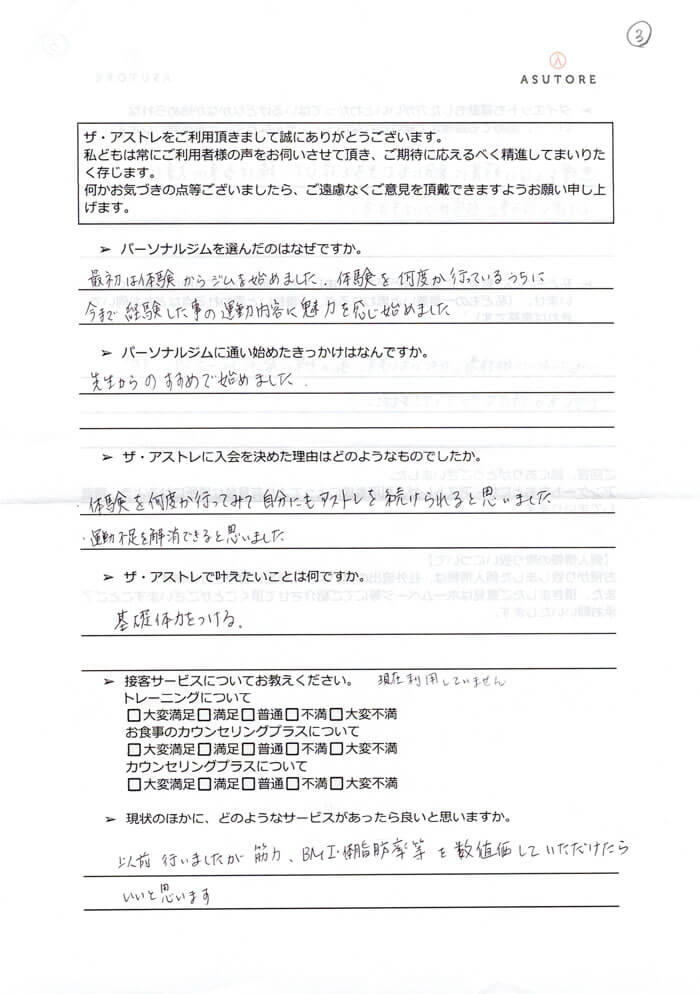 ③
ASUTORE
ザ・アストレをご利用頂きまして誠にありがとうございます。
私どもは常にご利用者様の声をお伺いさせて頂き、ご期待に応えるべく精進してまいりた
く存じます。
何かお気づきの点等ございましたら、ご遠慮なくご意見を頂戴できますようお願い申し上
げます。
➢ パーソナルジムを選んだのはなぜですか。
最初は体験からジムを始めました。体験を何度か行っているうちに
今まで経験した事の運動内容に魅力を感じ始めました
➢ パーソナルジムに通い始めたきっかけはなんですか。
先生からのすすめで始めました.
➢ ザ・アストレに入会を決めた理由はどのようなものでしたか。
・体験を何度か行ってみて自分にもアストレを続けられると思いました
・運動不足を解消できると思いました
➢ ザ・アストレで叶えたいことは何ですか。
基礎体力をつける.
➢ 接客サービスについてお教えください。 現在利用していません
トレーニングについて
□大変満足□満足□普通□不満□大変不満
お食事のカウンセリングプラスについて
□大変満足□満足□普通□不満□大変不満
カウンセリングプラスについて
□大変満足□満足□普通□不満□大変不満
➢ 現状のほかに、どのようなサービスがあったら良いと思いますか。
以前行いましたが筋力、BMI・体脂肪率等を数値価していただけたら
いいと思います